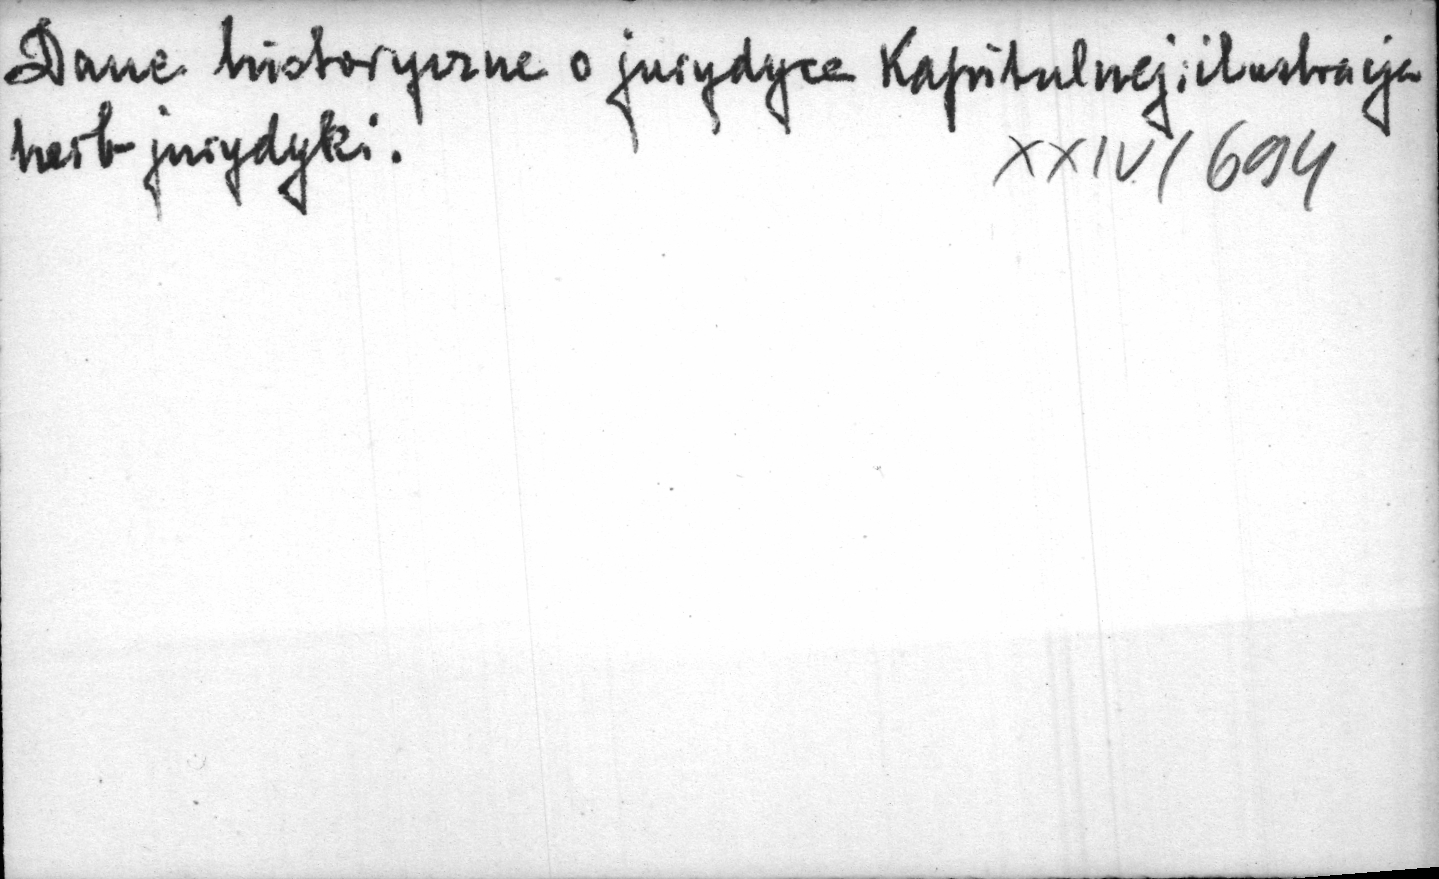 Dane historyczne o jurydyce Kapitulnej; ilustracja
herb jurydyki.
XXIV/694